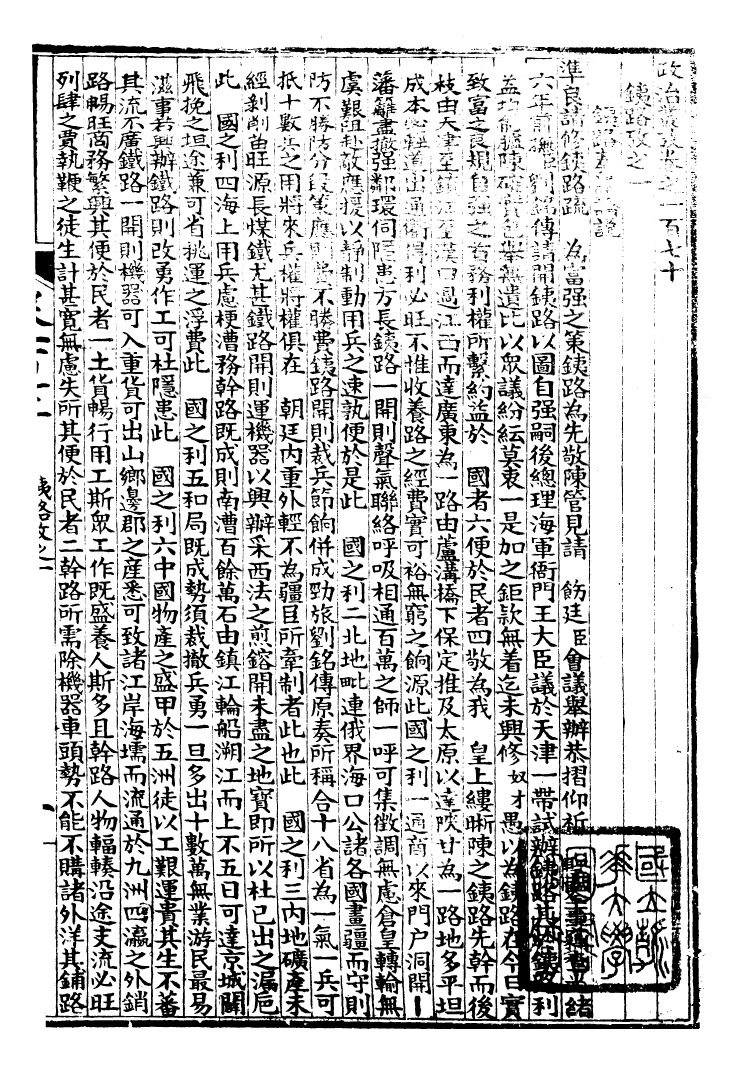 政治叢考卷之一百七十
鐵路攷之一
鐵路奏疏論說
準良請修鐵路疏　為富强之策鐵路為先敬陳管見請　飭廷臣會議舉辦恭摺仰祈　緒
六年前撫臣劉銘傳請開鐵路以圖自强嗣後總理海軍衙門王大臣議於天津一帶試辦鐵路其於鐵路利
益均能臚陳確實包舉無遺比以眾議紛紜莫衷一是加之鉅款無着迄未興修奴才愚以為鐵路在今日實
致富之良規自强之首務利權所繫約益於　國者六便於民者四敬為我　皇上縷晰陳之鐵路先幹而後
枝由天津至鎮江至漢口過江西而達廣東為一路由蘆溝橋下保定推及太原以達陝甘為一路地多平坦
成本必輕道出通衢得利必旺不惟收養路之經費實可裕無窮之餉源此國之利一通商以來門户洞開
藩籬盡撤强鄰環伺隱患方長鐵路一開則聲氣聯絡呼吸相通百萬之師一呼可集徵調無慮倉皇轉輸無
虞艱阻赴敵應援以靜制動用兵之速孰便於是此　國之利二北地毗連俄界海口公諸各國畫疆而守則
防不勝防分段策應則費不勝費鐵路開則裁兵節餉併成勁旅劉銘傳原奏所稱合十八省為一氣一兵可
抵十數兵之用將來兵權將權俱在　朝廷內重外輕不為疆臣所牽制者此也此　國之利三內地礦產未
經剥削苗旺源長煤鐵尤甚鐵路開則運機器以興辦采西法之煎鎔開未盡之地寶即所以杜已出之漏卮
此　國之利四海上用兵慮梗漕務幹路既成則南漕百餘萬石由鎮江輪船溯江而上不五日可達京城開
飛挽之坦途兼可省挑運之浮費此　國之利五和局既成勢須裁撤兵勇一旦多出十數萬無業游民最易
滋事若興辦鐵路則改勇作工可杜隱患此　國之利六中國物產之盛甲於五洲徒以工艱運貴其生不蕃
其流不廣鐵路一開則機器可入重貨可出山鄉邊郡之產悉可致諸江岸海壖而流通於九洲四瀛之外銷
路暢旺商務繁興其便於民者一土貨暢行用工斯眾工作既盛養人斯多且幹路人物輻輳沿途支流必旺
列肆之賈執鞭之徒生計甚寬無慮失所其便於民者二幹路所需除機器車頭勢不能不購諸外洋其鋪路
鐵路攷之一